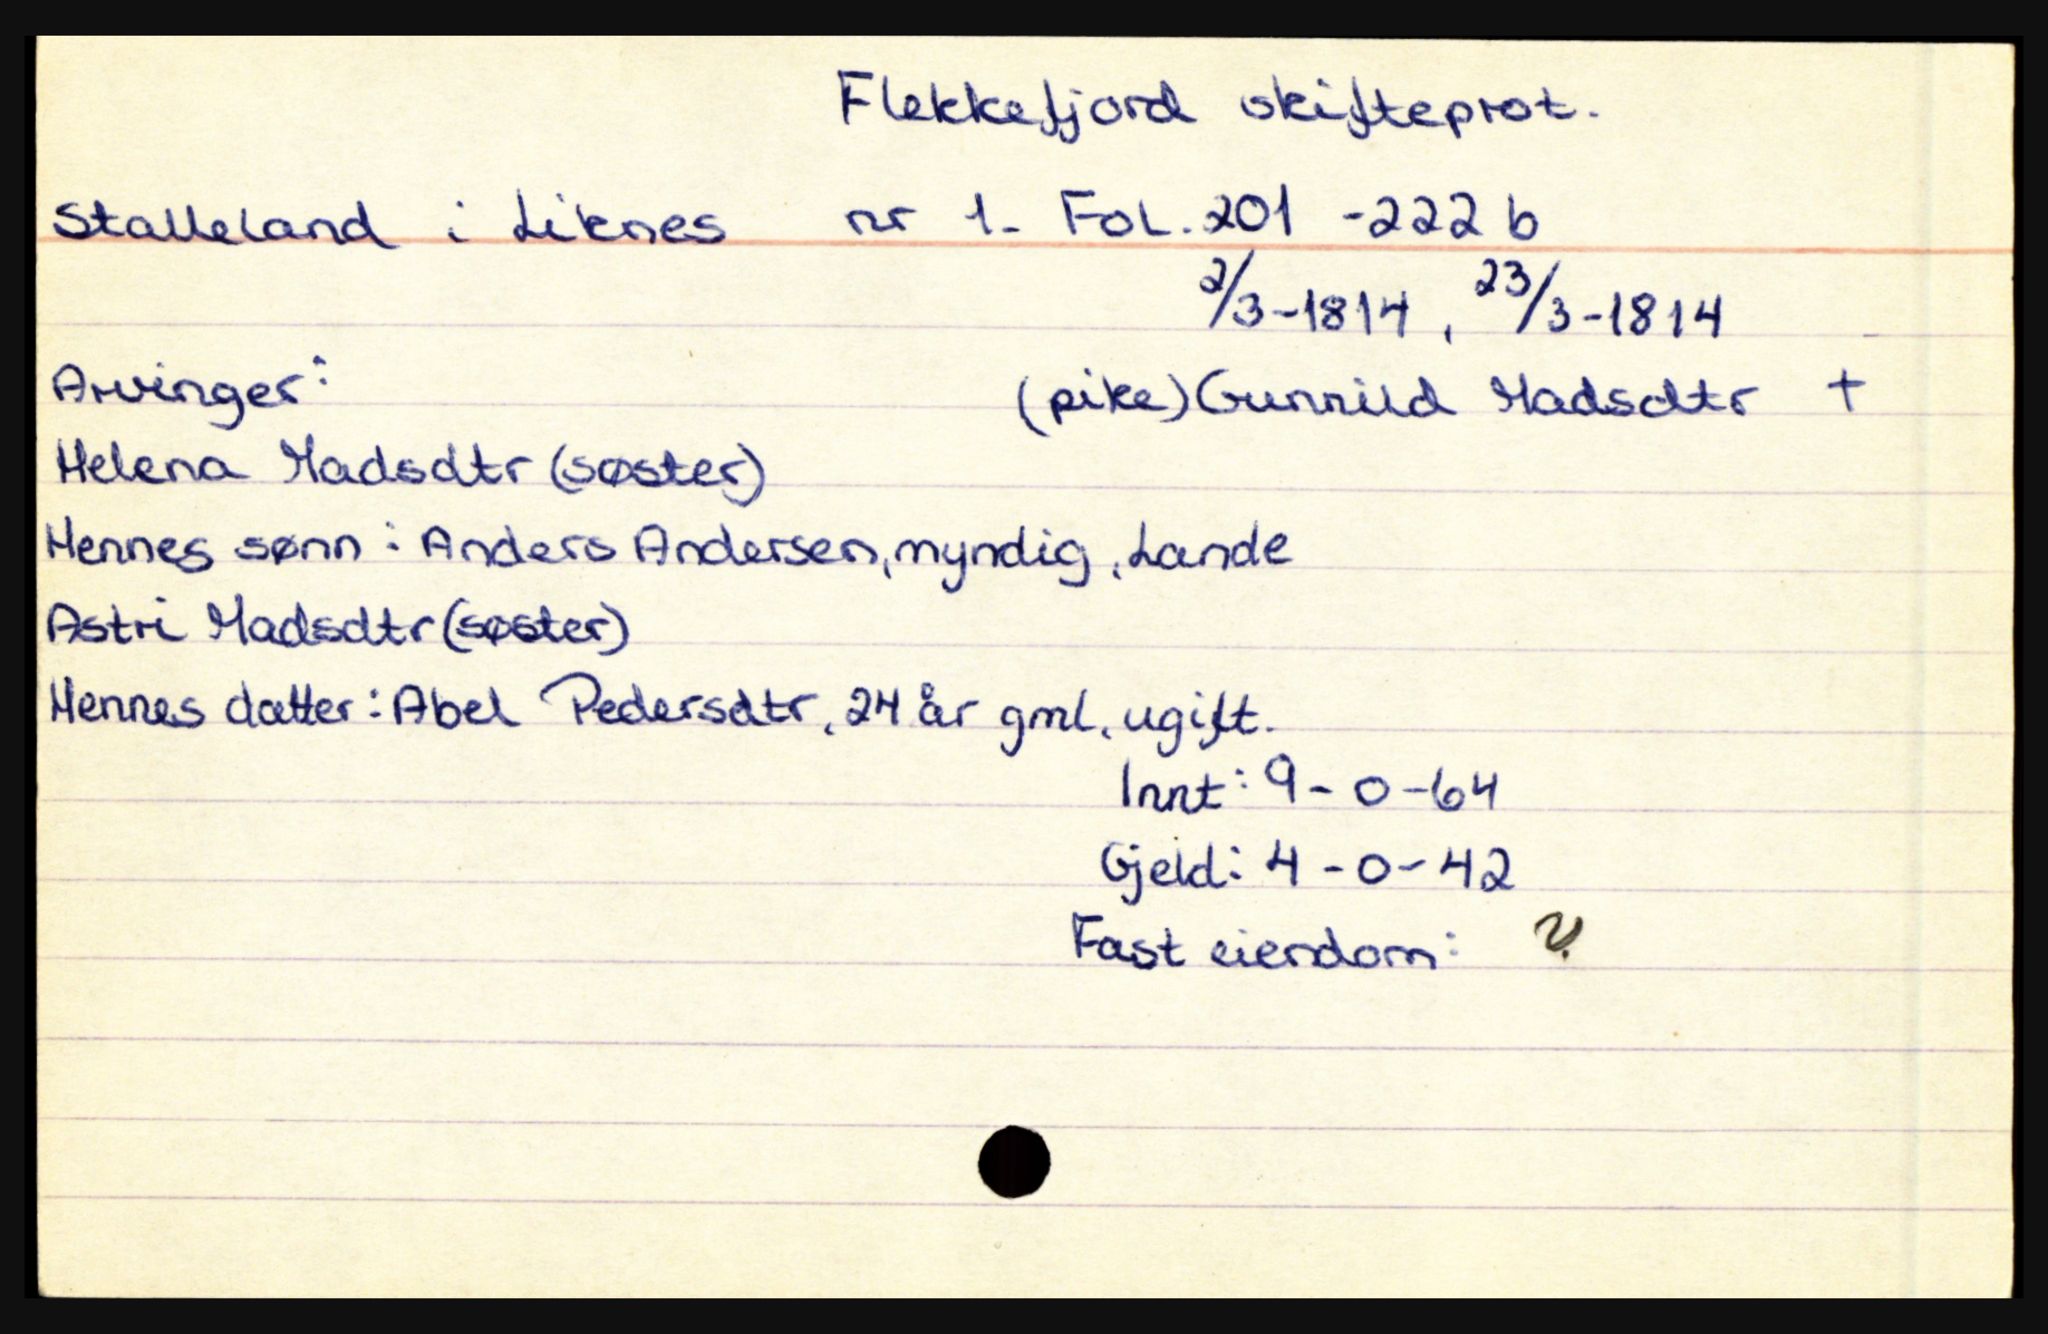 Flekkefjord skifteprot.
Stalleland i Liknes nr 1- Fol. 201 -222 b
2/3-1814, 23/3-1814
Arvinger: (pike) Gunnild Madsdtr +
Helena Madsdtr (søster)
Hennes sønn: Anders Andersen, myndig, Lande
Astri Madsdtr (søster)
Hennes datter: Abel Pedersdtr, 24 år gml, ugift.
Innt: 9-0-64
Gjeld: 4-0-42
Fast eiendom: ?